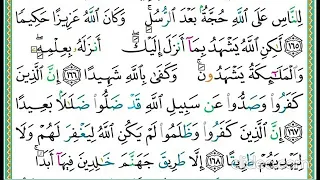 لِلنَّاسِ عَلَى اللَّهِ حُجَّةٌۢ بَعْدَ الرُّسُلِ ۚ وَكَانَ اللَّهُ عَزِيزًا حَكِيمًا
١٦٥ لَّٰكِنِ اللَّهُ يَشْهَدُ بِمَآ أَنزَلَ إِلَيْكَ ۖ أَنزَلَهُۥ بِعِلْمِهِۦ ۖ
وَالْمَلَٰٓئِكَةُ يَشْهَدُونَ ۚ وَكَفَىٰ بِاللَّهِ شَهِيدًا ١٦٦ إِنَّ الَّذِينَ
كَفَرُوا۟ وَصَدُّوا۟ عَن سَبِيلِ اللَّهِ قَدْ ضَلُّوا۟ ضَلَٰلًۢا بَعِيدًا
١٦٧ إِنَّ الَّذِينَ كَفَرُوا۟ وَظَلَمُوا۟ لَمْ يَكُنِ اللَّهُ لِيَغْفِرَ لَهُمْ وَلَا
لِيَهْدِيَهُمْ طَرِيقًا ١٦٨ إِلَّا طَرِيقَ جَهَنَّمَ خَٰلِدِينَ فِيهَآ أَبَدًا ۚ